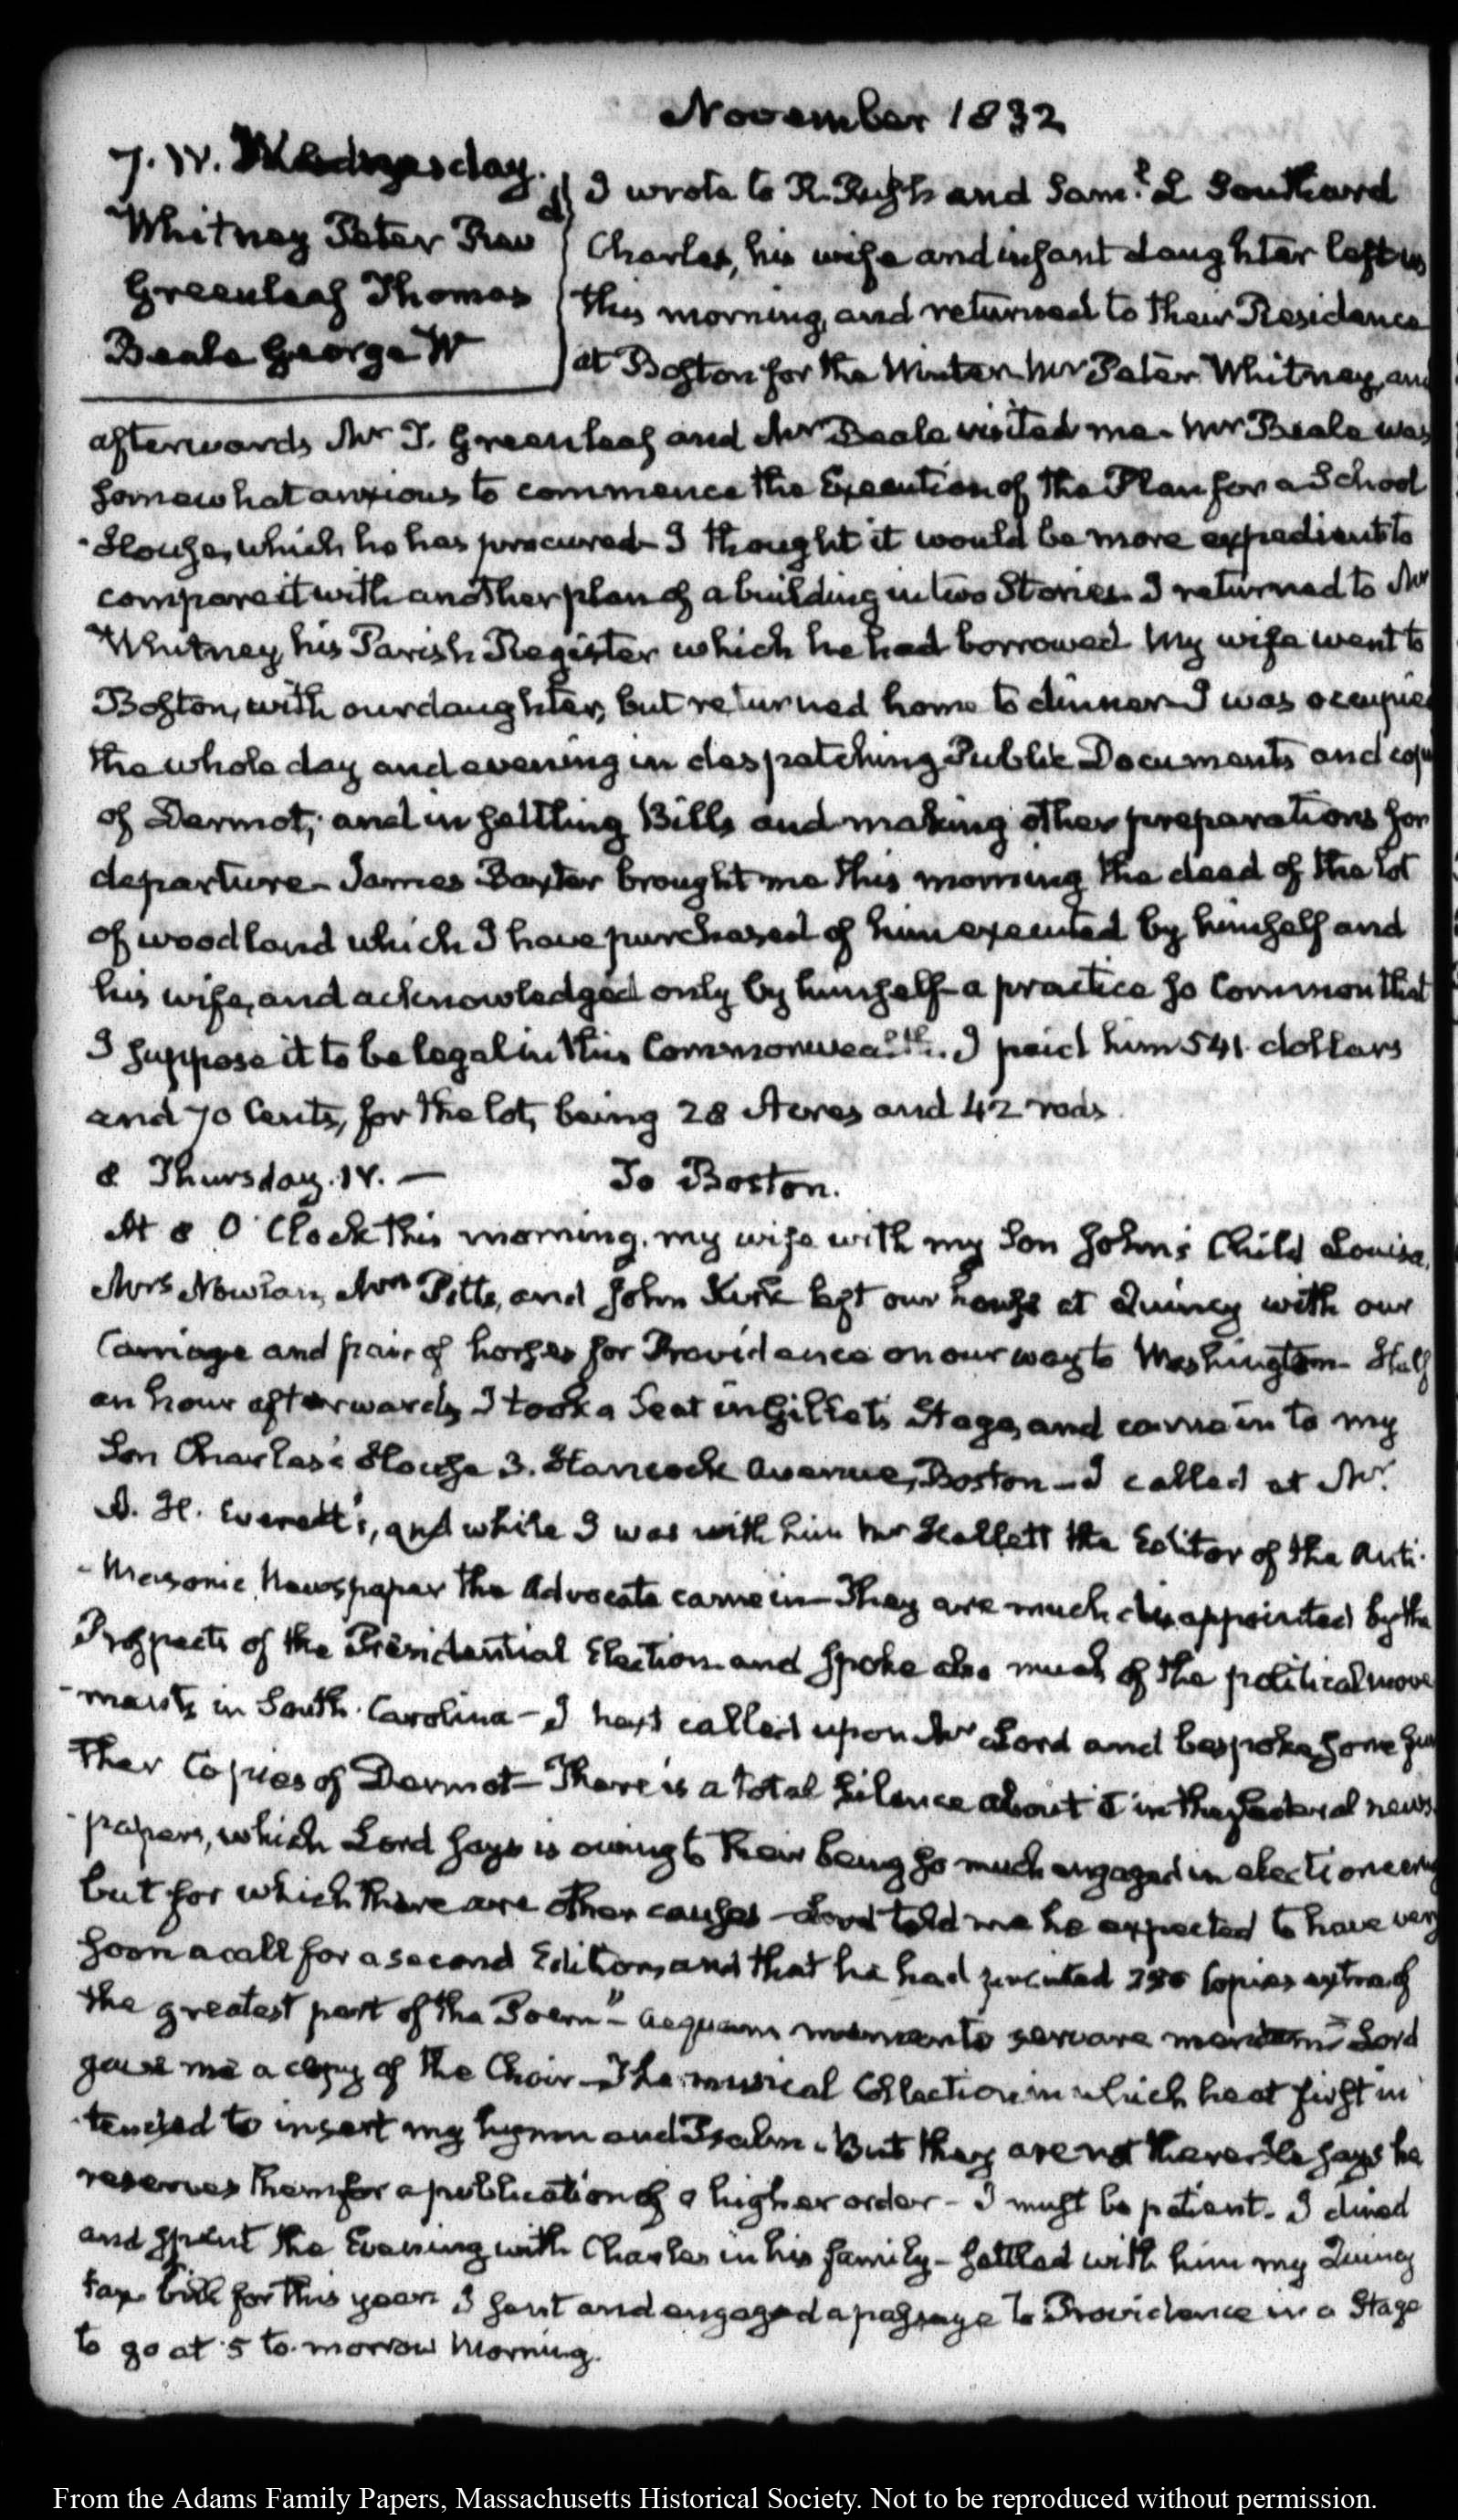 November 1832
7. IV. Wednesday.
Whitney Peter Revd
Greenleaf Thomas
Beale George W
I wrote to R. Rush and Saml. L Southard
Charles, his wife and infant daughter left us
this morning, and returned to their Residence
at Boston for the Winter. Mr Peter Whitney, and
afterwards Mr T. Greenleaf and Mr Beale visited me. Mr Beale was
somewhat anxious to commence the Execution of the Plan for a School
-House, which he has procured. I thought it would be more expedient to
compare it with another plan of a building in two Stories. I returned to Mr
Whitney his Parish Register which he had borrowed. My wife went to
Boston, with our daughter, but returned home to dinner. I was occupied
the whole day and evening in despatching Public Documents and
of Dermot; and in settling Bills and making other preparations for
departure. James Baxter brought me this morning the deed of the lot
of woodland which I have purchased of him executed by himself and
his wife, and acknowledged only by himself- a practice so common that
I suppose it to be legal in this Commonwealth. I paid him 541 dollars
and 70 Cents, for the lot, being 28 Acres and 42 rods.
8 Thursday. IV. — To Boston.
At 8 O'Clock this morning, my wife with my Son John's Child Louisa,
Mrs Nowlan, Mrs Pitts, and John Kirk left our house at Quincy with our
Carriage and pair of horses for Providence on our way to Washington- Half
an hour afterwards I took a Seat in Gillett's Stage, and came in to my
Son Charles's House 3. Hancock Avenue, Boston - I called at Mr.
A. H. Everett's, and while I was with him Mr Hallett the Editor of the Anti-
-Masonic Newspaper the Advocate came in- They are much disappointed by the
Prospects of the Presidential Election and spoke also much of the political move
-ments in South-Carolina - I next called upon Mr Lord and bespoke some fur
ther Copies of Dermot- There is a total silence about it in the federal news-
-papers, which Lord says is owing to their being so much engaged in electioneering
but for which there are other causes - Lord told me he expected to have very
soon a call for a second Edition, and that he had printed 250 Copies extra of
the greatest part of the Poem- "aequam memento servare mentem" Lord
gave me a copy of the Choir- The musical Collection in which he at first in
-tended to insert my hymn and Psalm. But they are not there. He says he
reserves them for a publication of a higher order - I must be patient. I dined
and spent the Evening with Charles in his family - settled with him my Quincy
tax bill for this year. I sent and engaged a passage to Providence in a Stage
to go at 5 to-morrow Morning.
From the Adams Family Papers, Massachusetts Historical Society. Not to be reproduced without permission.